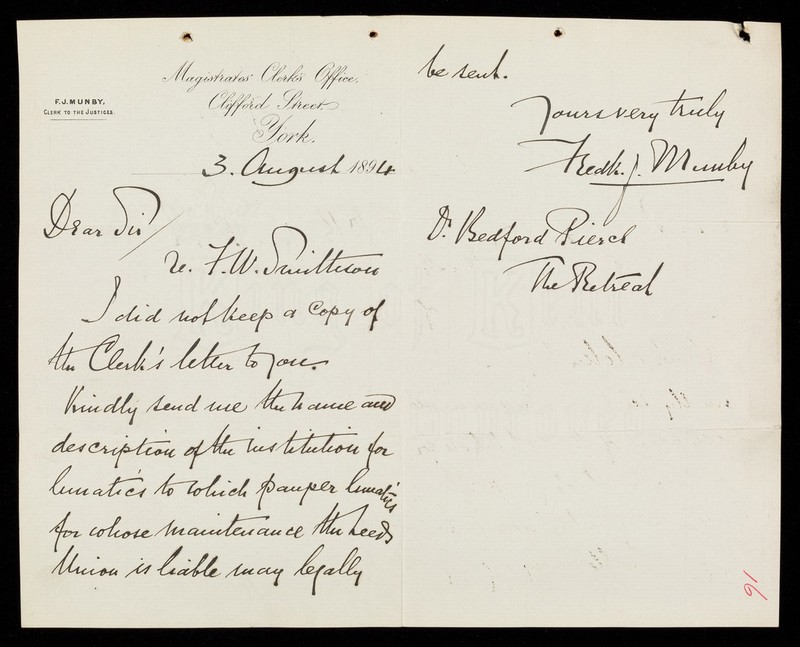 Magistrates' Clerk's Office,
Clifford Street,
York.
F. J. MUNBY,
CLERK TO THE JUSTICES.
3. August 1894
Dear Sir/
re. F. W. Smithson
I did not keep a copy of
the Clerk's letter to you.
Kindly send me the name and
description of the institution for
lunatics to which pauper lunatics
for whose maintenance the Leeds
Union is liable may legally
be sent.
Yours very truly
Fredk. J. Munby
Dr. Bedford Pierce
The Retreat
91